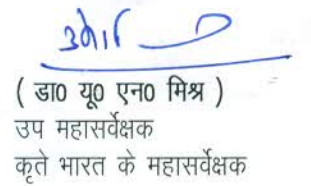 ( डा0 यू0 एन0 मिश्र )
उप महासर्वेक्षक
कृते भारत के महासर्वेक्षक